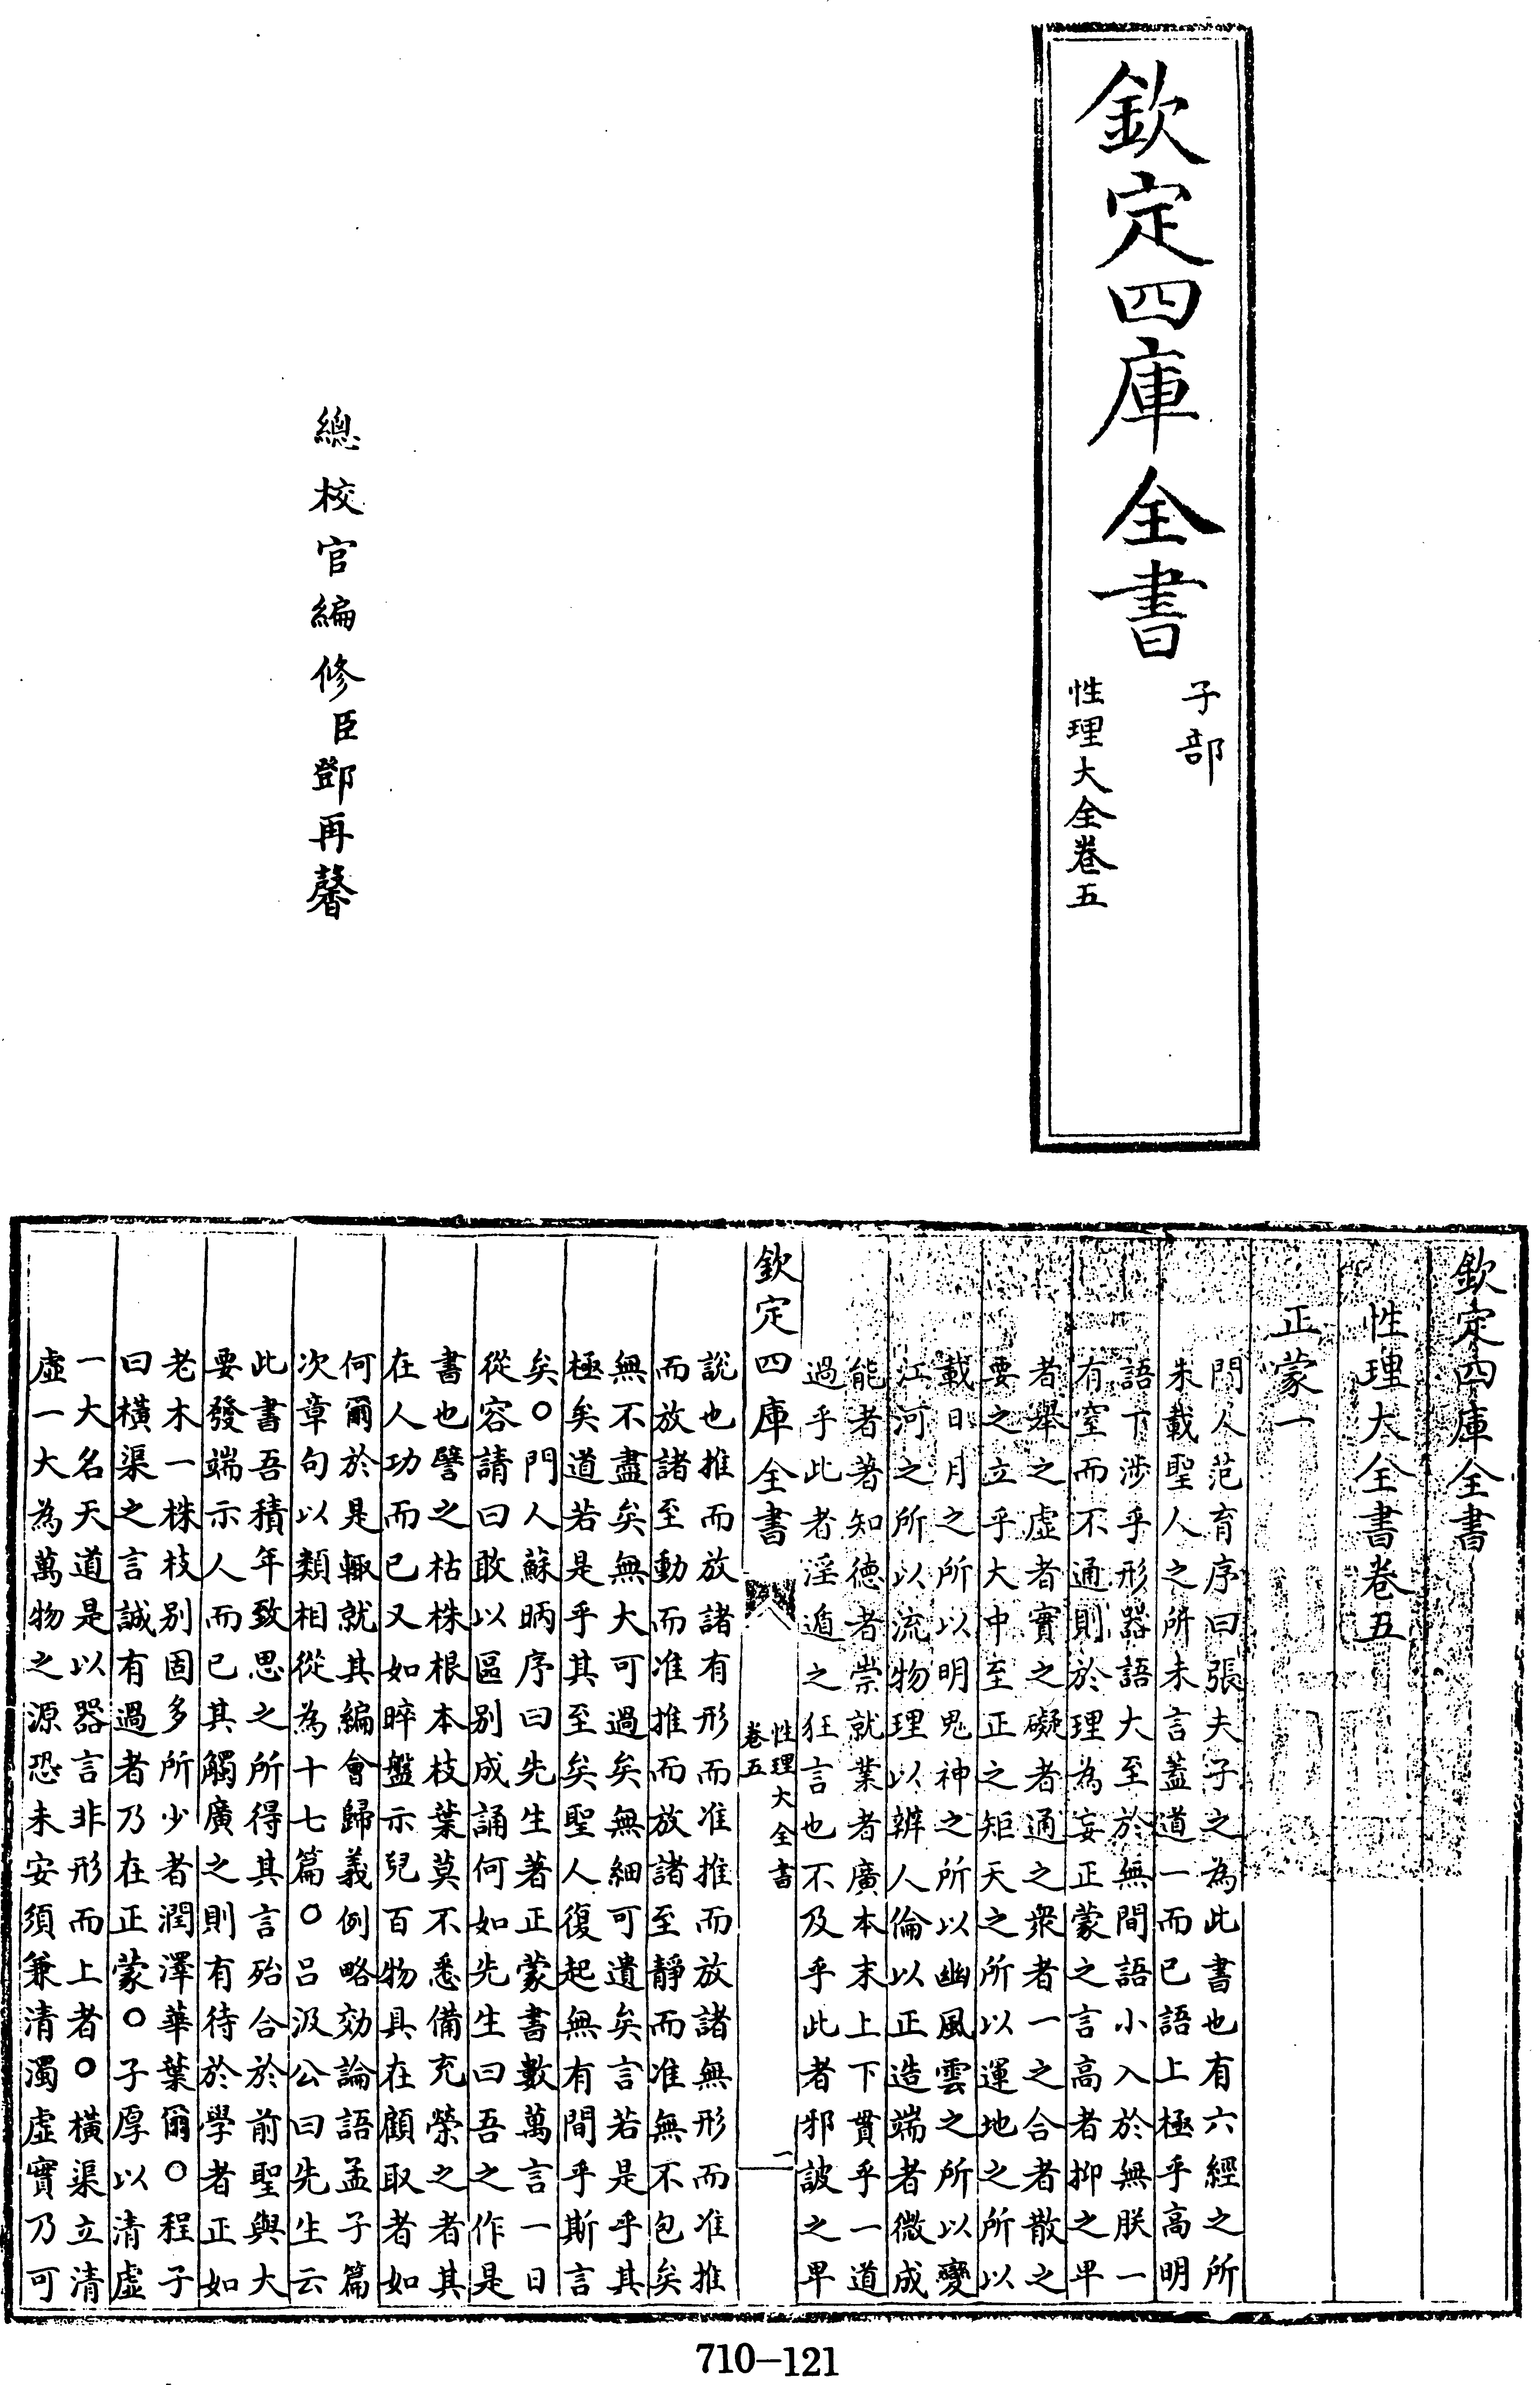 欽定四庫全書
子部
性理大全卷五
總校官編修臣鄧再馨
欽定四庫全書
性理大全書卷五
正蒙一
門人范育序曰張夫子之為此書也有六經之所
未載聖人之所未言蓋道一而已語上極乎高明
語下涉乎形器語大至於無間語小入於無朕一
有窒而不通則於理為妄正蒙之言高者抑之卑
者舉之虛者實之礙者通之衆者一之合者散之
要之立乎大中至正之矩天之所以運地之所以
載日月之所以明鬼神之所以幽風雲之所以變
江河之所以流物理以辨人倫以正造端者微成
能者著知德者崇就業者廣本末上下貫乎一道
過乎此者淫遁之狂言也不及乎此者邪詖之卑
欽定四庫全書
性理大全書
卷五
一
說也推而放諸有形而准推而放諸無形而准推
而放諸至動而准推而放諸至静而准無不包矣
無不盡矣無大可過矣無細可遺矣言若是乎其
極矣道若是乎其至矣聖人復起無有間乎斯言
矣○門人蘇昞序曰先生著正蒙書數萬言一日
從容請曰敢以區别成誦何如先生曰吾之作是
書也譬之枯株根本枝葉莫不悉備充榮之者其
在人功而已又如晬盤示兒百物具在顧取者如
何爾於是輒就其編會歸義例略効論語孟子篇
次章句以類相從為十七篇○呂汲公曰先生云
此書吾積年致思之所得其言殆合於前聖與大
要發端示人而已其觸廣之則有待於學者正如
老木一株枝别固多所少者潤澤華葉爾○程子
曰橫渠之言誠有過者乃在正蒙○子厚以清虛
一大名天道是以器言非形而上者○橫渠立清
虛一大為萬物之源恐未安須兼清濁虛實乃可
710-121